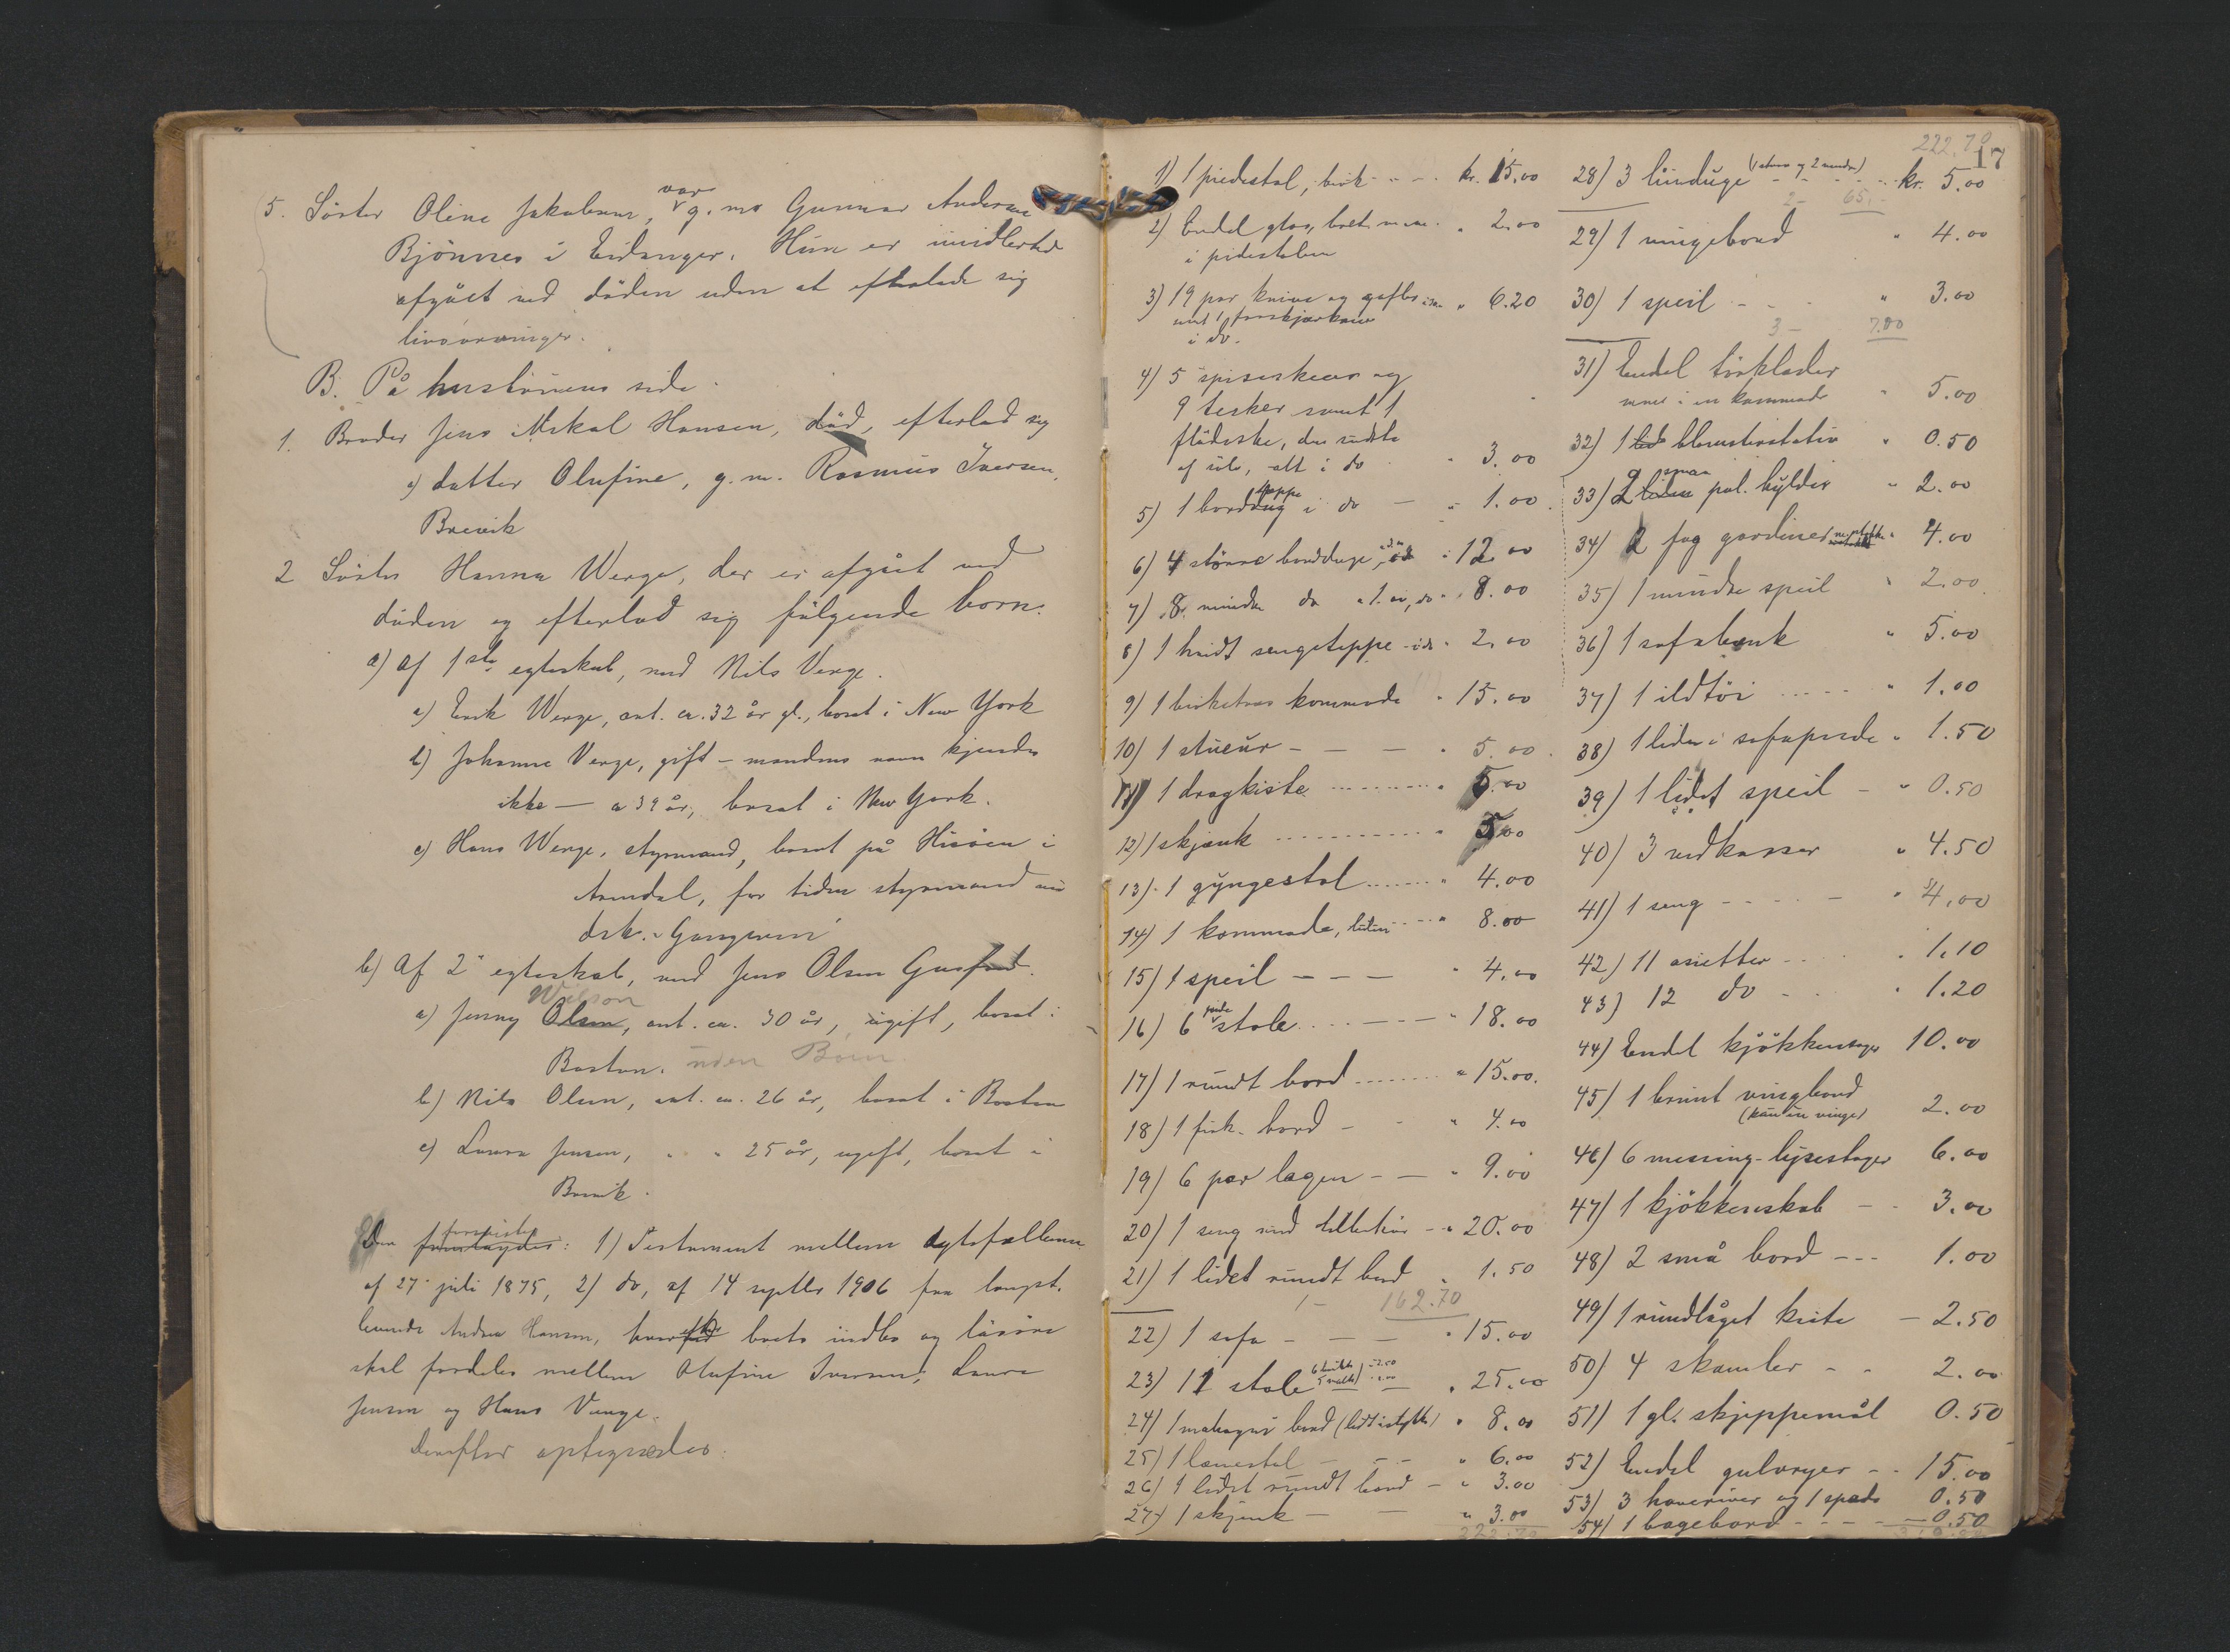 5. Söster Oline Jakobsen, var g. m. Gunnar Andersen
Bjönnes i Eidanger. Hun er imidlertid
afgået ved döden uden at efterlade sig
livsarvinger.
B. På hustruens side.
1. Broder Jens Hansen, död, efterlod sig
a) datter Olufine, g. m. Rasmus Iversen,
Brevik
2 Söster Hanna Werge, der er afgået ved
döden og efterlod sig fölgende born.
a) Af 1ste egteskab, med Nils Verge.
a) Erik Werge, ant. ca. 32 år gl., bosat i New York
b) Johanne Verge, gift – mandens navn kjendes
ikke – ca 39 år, bosat i New York.
c) Hans Werge, styrmand, bosat på Hisöen i
Arendal, for tiden styrmand
dsk.
b) Af 2. egteskab, med Jens Olsen
Wilson
a) Jenny Olsen, ant. ca. 30 år, ugift, bosat i
Boston. uden Börn
b) Nils Olsen, ant. ca. 26 år, bosat i Boston
c) Laura Jensen, " " 25 år, ugift, bosat i
Brevik.
forevistes
Der : 1) Testament mellem ægtefællerne
af 27. juli 1875, 2) do, af 14 septbr 1906 fra længst-
levende Andrea Hansen, hvorefter boets indbo og lösöre
skal fordeles mellem Olufine Iversen, Laura
Jensen og Hans Verge.
Derefter optegnedes:
222.70
17
1) 1 piedestal, birk - - - kr. 15.00
2) Endel glas, m.m. " 2.00
i pidestalen
3) 19 par knive og gafler " 6.20
samt 1 forskjærkniv
i do.
4) 5 spiseskeer og
9 tesker samt 1
flödeske, den sidste
af sölv, alt i do " 3.00
5) 1 bordteppe i do — " 1.00
6) 4 större bordduge, i do " 12.00
7) 8 mindre do a 1.00, do " 8.00
8) 1 hvidt sengeteppe i do " 2.00
9) 1 birketræs kommode " 15.00
10) 1 stueur - — — " 5.00
11) 1 dragkiste ........ " 5.00
12) 1 skjænk ........ " 5.00
13) 1 gyngestol ....... " 4.00
14) 1 kommode, liden .... " 8.00
15) 1 speil — — — " 4.00
16) 6 stole .... — — " 18.00
17) 1 rundt bord ....... " 15.00.
18) 1 firk. bord - - " 4.00
19) 6 par lagen - — " 9.00
20) 1 seng med tilbehör - " 20.00
21) 1 lidet rundt bord " 1.50
1- 162.70
22) 1 sofa - — — " 15.00
23) 11 stole " 25.00
24) 1 mahogni bord " 8.00
25) 1 lænestol - - - " 6.00
26) 1 lidet rundt bord - " 3.00
27) 1 skjænk - — " 3.00
222.70
28) 3 linduge (1 större og 2 mindre) kr. 5.00
2- 65.-
29) 1 vingebord " 4.00
30) 1 speil - - " 3.00
3- 7.00
31) Endel
i en kommode " 5.00
32) 1 blomsterstativ " 0.50
33) 2 smaa pol. hylder " 2.00
34) 2 fag gardiner " 4.00
35) 1 mindre speil " 2.00
36) 1 sofabænk " 5.00
37) 1 ildtöi ..... " 1.00
38) 1 liden sofapude " 1.50
39) 1 lidet speil - " 0.50
40) 3 vedkasser " 4.50
41) 1 seng - - - - — " 4.00
42) 11 asietter - . . " 1.10
43) 12 do - . . " 1.20
44) Endel kjökkensager 10.00
45) 1 brunt vingbord
(kun en vinge) 2.00
46) 6 messing-lysestager 6.00
47) 1 kjökkenskab - - 3.00
48) 2 små bord - - - 1.00
49) 1 rundlåget kiste — 2.50
50) 4 skamler - - 2.00
51) 1 gl. skjeppemål 0.50
52) Endel gulvryer - - 15.00
53) 3 haveriver og 1 spade 0.50
54) 1 bagebord - - - — 0.50